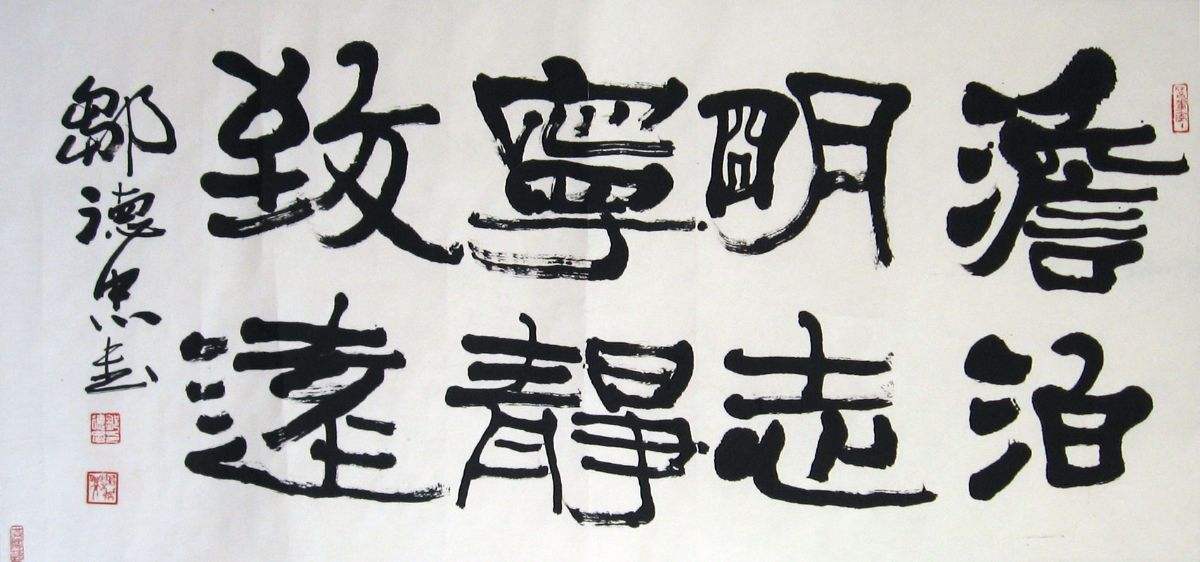 澹泊
明志
寧靜
致遠
鄒德忠書